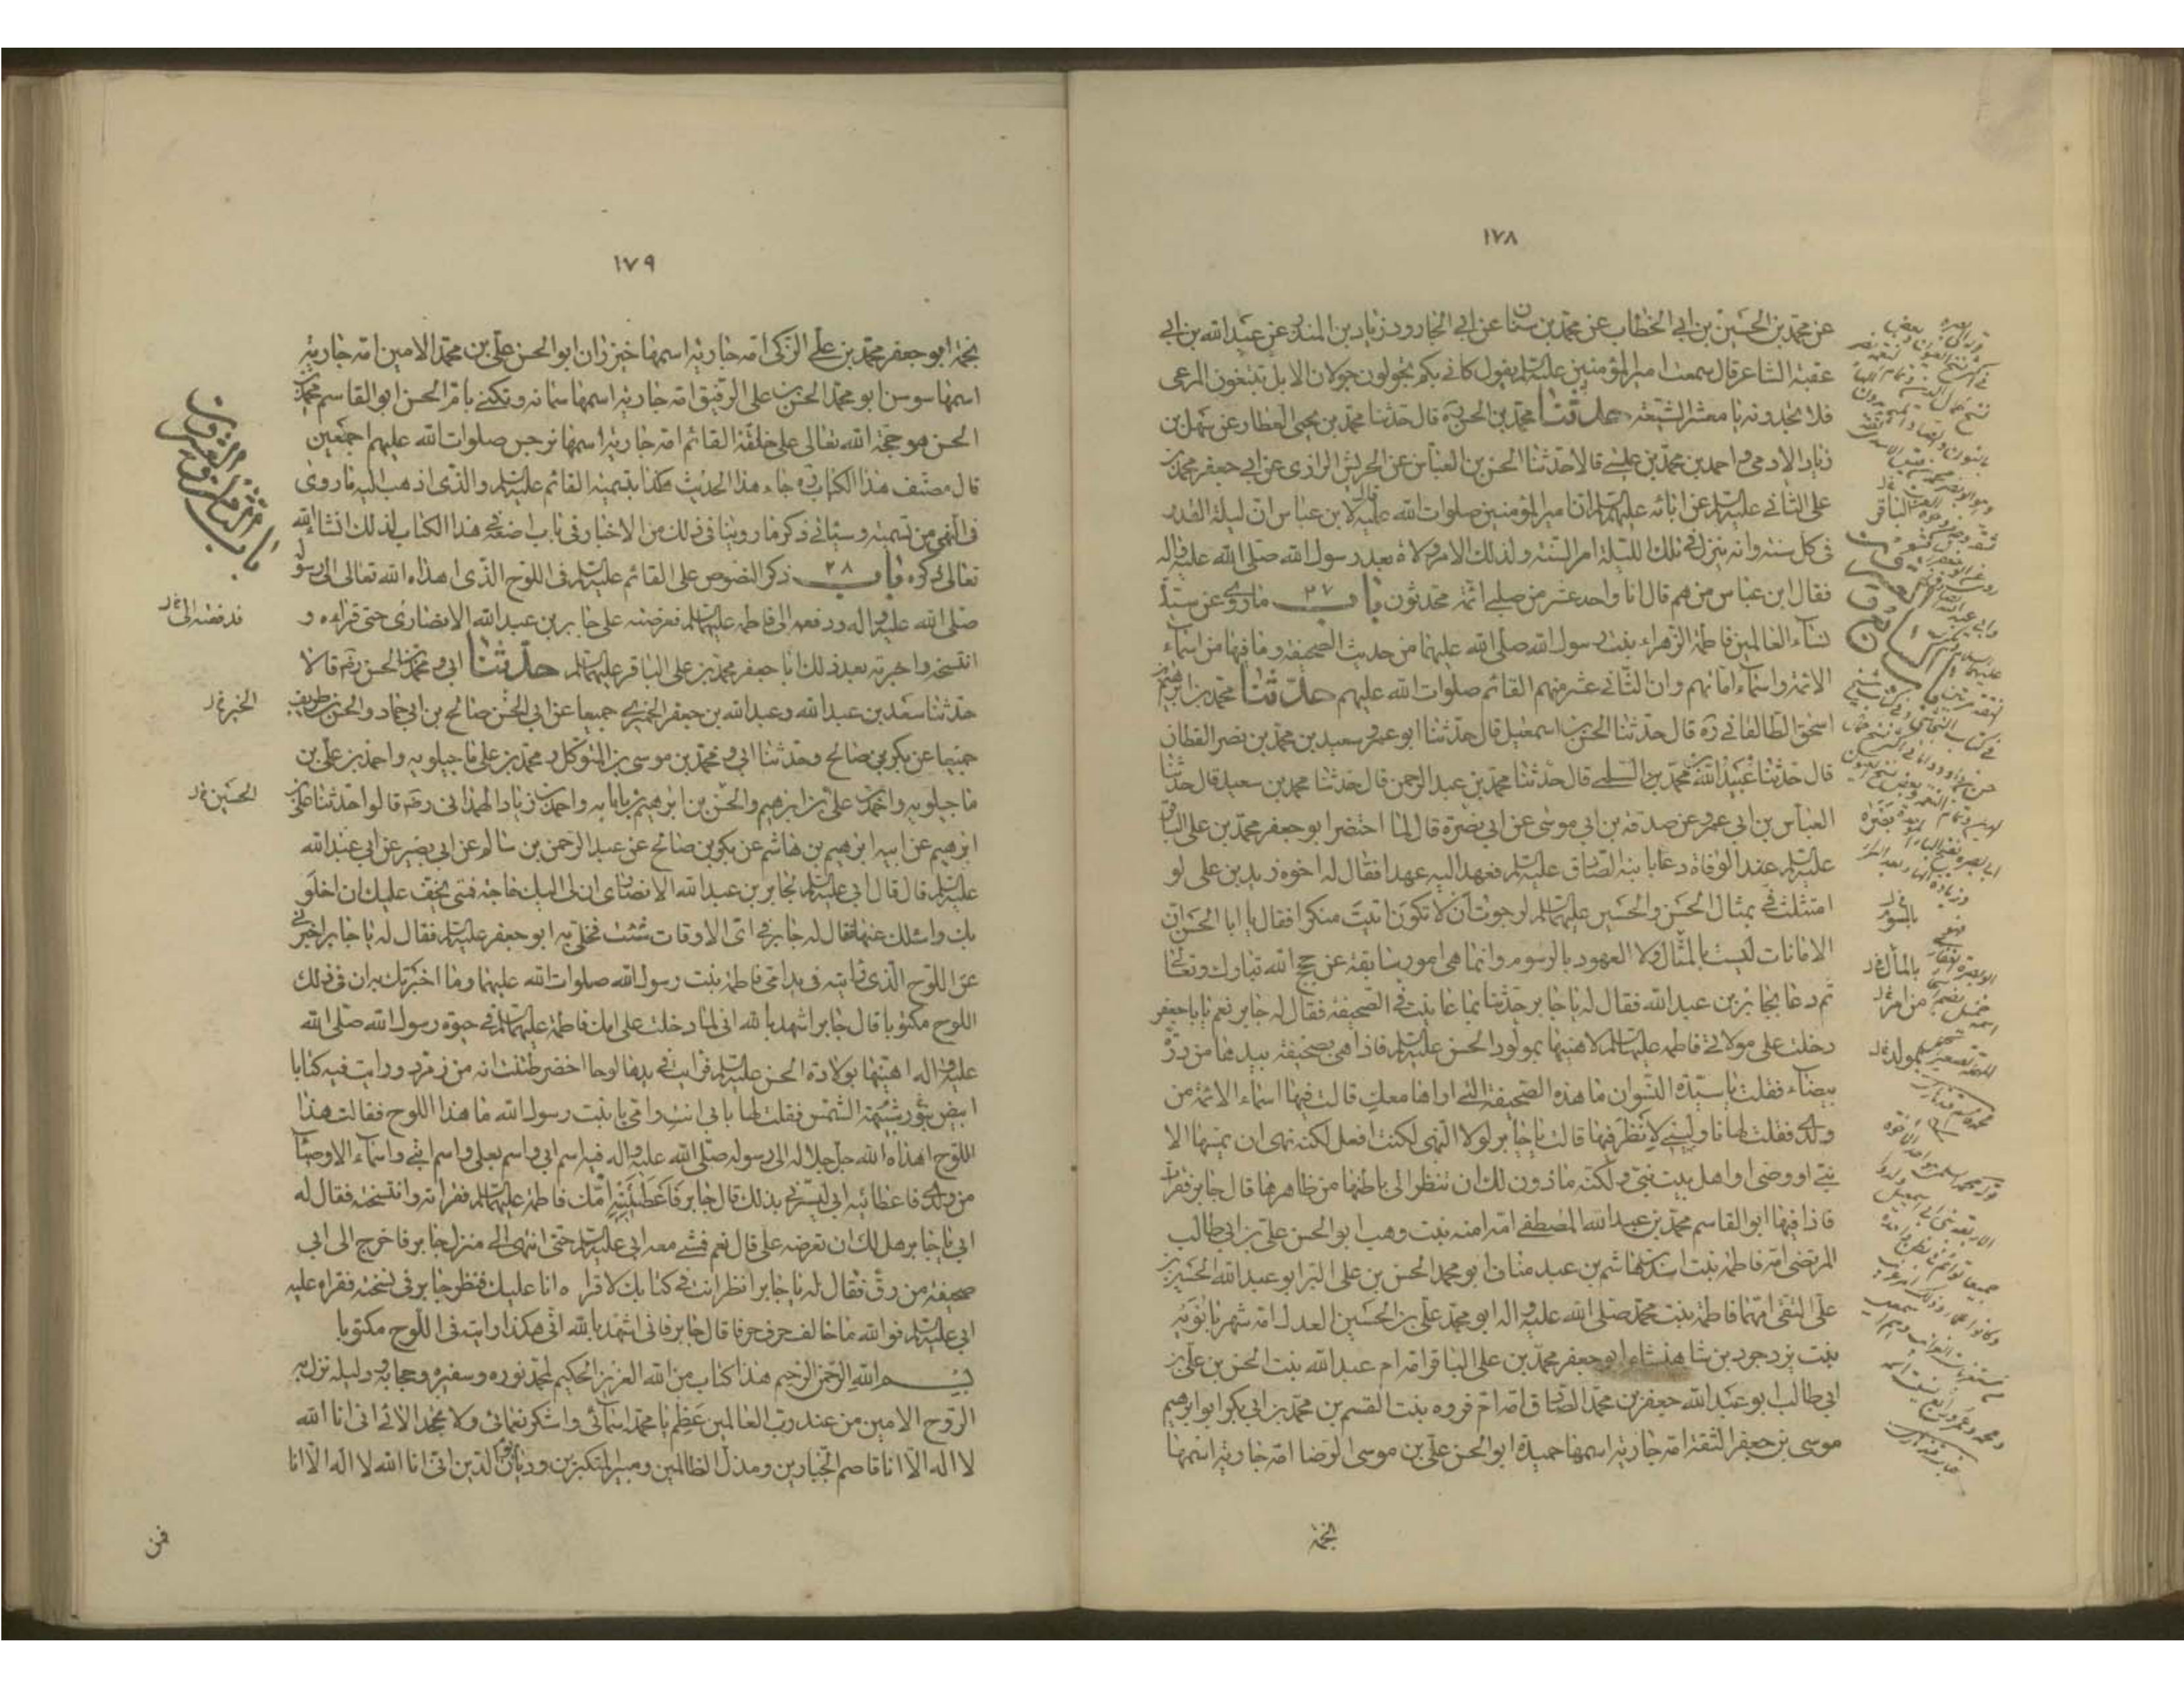 ١٧٨
عن محمد بن الحسين بن ابي الخطاب عن محمد بن سنان عن ابي الجارود زياد بن المنذر عن عبد الله بن ابي
عقبة الشاعر قال سمعت امير المؤمنين عليه السلام يقول كاني بكم تجولون جولان الابل تبتغون المرعى
فلا تجدونه يا معشر الشيعة حدثنا محمد بن الحسن ره قال حدثنا محمد بن يحيى العطار عن سهل بن
زياد الادمي و احمد بن محمد بن عيسى قالا حدثنا الحسن بن العباس عن الحريش الرازي عن ابي جعفر محمد بن
علي الثاني عليه السلام عن ابائه عليهم السلام ان امير المؤمنين صلوات الله عليه قال لابن عباس ان ليلة القدر
في كل سنة وانه ينزل في تلك الليلة امر السنة ولذلك الامر ولاة بعد رسول الله صلى الله عليه واله
فقال ابن عباس من هم قال انا واحد عشر من صلبي ائمة محدثون باب ٢٧ ما روي عن سيدة
نساء العالمين فاطمة الزهراء بنت رسول الله صلى الله عليهما من حديث الصحيفة وما فيها من اسماء
الائمة واسماء امهاتهم وان الثاني عشر منهم القائم صلوات الله عليهم حدثنا محمد بن ابرهيم بن
اسحق الطالقاني ره قال حدثنا الحسن بن اسمعيل قال حدثنا ابو عمرو سعيد بن محمد بن نصر القطان
قال حدثنا عبيد الله بن محمد بن السلمي قال حدثنا محمد بن عبد الرحمن قال حدثنا محمد بن سعيد قال حدثنا
العباس بن ابي عمرو عن صدقة بن ابي موسى عن ابي نضرة قال لما احتضر ابو جعفر محمد بن علي الباقر
عليه السلام عند الوفاة دعا بابنه الصادق عليه السلام فعهد اليه عهدا فقال له اخوه زيد بن علي لو
امتثلت في بمثال الحسن والحسين عليهما السلام لرجوت ان لا تكون اتيت منكرا فقال يا ابا الحسن ان
الامانات ليست بالمثال ولا العهود بالرسوم وانما هي امور سابقة عن حجج الله تبارك وتعالى
ثم دعا بجابر بن عبد الله فقال له يا جابر حدثنا بما عاينت في الصحيفة فقال له جابر نعم يا با جعفر
دخلت على مولاتي فاطمة عليها السلام لاهنيها بمولود الحسن عليه السلام فاذا هي بصحيفة بيدها من درة
بيضاء فقلت يا سيدة النسوان ما هذه الصحيفة التي اراها معك قالت فيها اسماء الائمة من
ولدي فقلت لها ناوليني لانظر فيها قالت يا جابر لولا النهي لكنت افعل لكنه نهى ان يمسها الا
نبي او وصي او اهل بيت نبي ولكنه ماذون لك ان تنظر الى باطنها من ظاهرها قال جابر فقرات
فاذا فيها ابو القاسم محمد بن عبد الله المصطفى امه امنه بنت وهب ابو الحسن علي بن ابي طالب
المرتضى امه فاطمة بنت اسد بن هاشم بن عبد مناف ابو محمد الحسن بن علي البر ابو عبد الله الحسين بن
علي التقي امهما فاطمة بنت محمد صلى الله عليه واله ابو محمد علي بن الحسين العدل امه شهربانويه
بنت يزدجرد بن شاهنشاه ابو جعفر محمد بن علي الباقر امه ام عبد الله بنت الحسن بن علي بن
ابي طالب ابو عبد الله جعفر بن محمد الصادق امه ام فروه بنت القسم بن محمد بن ابي بكر ابو ابرهيم
موسى بن جعفر الثقة امه جارية اسمها حميدة ابو الحسن علي بن موسى الرضا امه جارية اسمها
نجمة
١٧٩
نجمة ابو جعفر محمد بن علي الزكي امه جارية اسمها خيزران ابو الحسن علي بن محمد الامين امه جارية
اسمها سوسن ابو محمد الحسن بن علي الرفيق امه جارية اسمها سمانه وتكنى بام الحسن ابو القاسم محمد بن
الحسن هو حجة الله تعالى على خلقه القائم امه جارية اسمها نرجس صلوات الله عليهم اجمعين
قال مصنف هذا الكتاب ره جاء هذا الحديث هكذا بتسمية القائم عليه السلام والذي اذهب اليه ما روى
في النهي من تسميته وسياتي ذكر ما روينا في ذلك من الاخبار في باب اضعه في هذا الكتاب لذلك انشاء الله
تعالى ذكره باب ٢٨ ذكر النصوص على القائم عليه السلام في اللوح الذي اهداه الله تعالى الى رسوله
صلى الله عليه واله ودفعه الى فاطمة عليها السلام فعرضته على جابر بن عبد الله الانصاري حتى قراه و
انتسخه واخبر به بعد ذلك ابا جعفر محمد بن علي الباقر عليهما السلام حدثنا ابي و محمد بن الحسن رضه قالا
حدثنا سعد بن عبد الله وعبد الله بن جعفر الحميري جميعا عن ابي الحسن صالح بن ابي حماد والحسن بن طريف
جميعا عن بكر بن صالح وحدثنا ابي و محمد بن موسى بن المتوكل و محمد بن علي ماجيلويه واحمد بن علي بن
ماجيلويه واحمد بن علي بن ابرهيم والحسن بن ابرهيم بن باباه واحمد بن زياد الهمداني رضه قالوا حدثنا علي بن
ابرهيم عن ابيه ابرهيم بن هاشم عن بكر بن صالح عن عبد الرحمن بن سالم عن ابي بصير عن ابي عبد الله
عليه السلام قال قال ابي عليه السلام لجابر بن عبد الله الانصاري ان لي اليك حاجة فمتى يخف عليك ان اخلو
بك واسئلك عنها فقال له جابر في اي الاوقات شئت فخلى به ابو جعفر عليه السلام فقال له يا جابر اخبرني
عن اللوح الذي رايته في يد امي فاطمة بنت رسول الله صلوات الله عليهما وما اخبرتك به ان في ذلك
اللوح مكتوبا قال جابر اشهد بالله اني لما دخلت على امك فاطمة عليها السلام في حيوة رسول الله صلى الله
عليه واله اهنئها بولادة الحسن عليه السلام فرايت في يدها لوحا اخضر ظننت انه من زمرد ورايت فيه كتابا
ابيض بنور شبيهة الشمس فقلت لها بابي انت وامي يا بنت رسول الله ما هذا اللوح فقالت هذا
اللوح اهداه الله جل جلاله الى رسوله صلى الله عليه واله فيه اسم ابي واسم بعلي واسم ابني واسماء الاوصياء
من ولدي فاعطانيه ابي ليسرني بذلك قال جابر فاعطتنيه امك فاطمة عليها السلام فقراته وانتسخته فقال له
ابي يا جابر هل لك ان تعرضه علي قال نعم فمشى معه ابي عليه السلام حتى انتهى الى منزل جابر فاخرج الى ابي
صحيفة من رق فقال له يا جابر انظر انت في كتابك لاقراه انا عليك فنظر جابر في نسخته فقراه عليه
ابي عليه السلام فوالله ما خالف حرف حرفا قال جابر فاني اشهد بالله اني هكذا رايته في اللوح مكتوبا
بسم الله الرحمن الرحيم هذا كتاب من الله العزيز الحكيم لمحمد نوره وسفيره وحجابه ودليله نزل به
الروح الامين من عند رب العالمين عظم يا محمد اسمائي واشكر نعمائي ولا تجحد الائي اني انا الله
لا اله الا انا قاصم الجبارين ومذل الظالمين ومبير المتكبرين وديان الدين اني انا الله لا اله الا انا
فدفعته الى خ ل
الخبر خ ل
الحسين خ ل
فمن